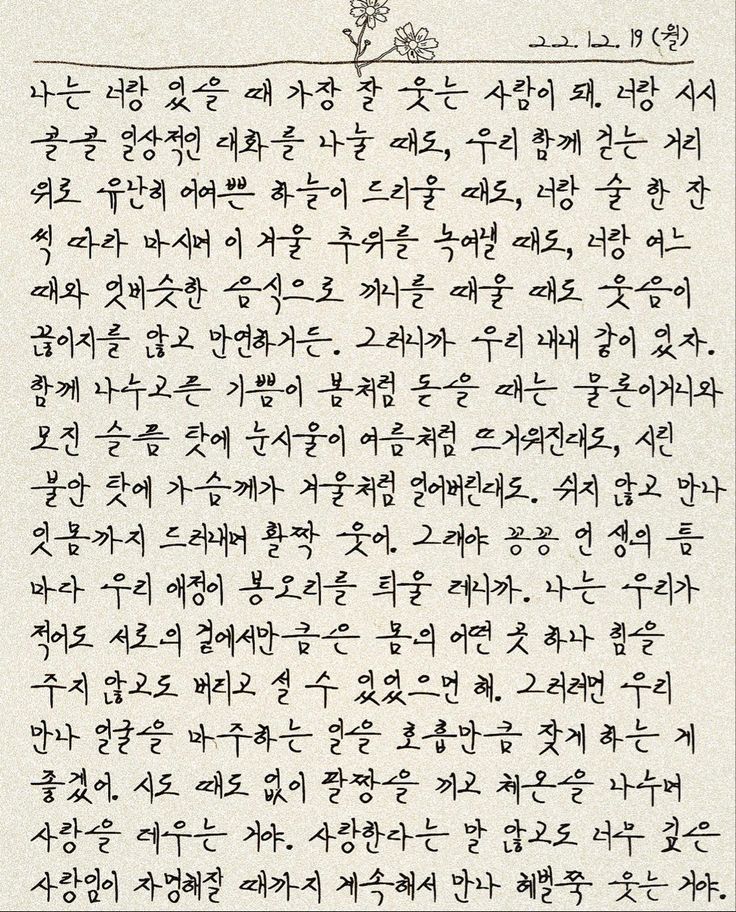 22.12.19 (월)
나는 너랑 있을 때 가장 잘 웃는 사람이 돼. 너랑 시시
콜콜 일상적인 대화를 나눌 때도, 우리 함께 걷는 거리
위로 유난히 어여쁜 하늘이 드리울 때도, 너랑 술 한 잔
씩 따라 마시며 이 겨울 추위를 녹여낼 때도, 너랑 여느
때와 엇비슷한 음식으로 끼니를 때울 때도 웃음이
끊이지를 않고 만연하거든. 그러니까 우리 내내 같이 있자.
함께 나누고픈 기쁨이 봄처럼 돋을 때는 물론이거니와
모진 슬픔 탓에 눈시울이 여름처럼 뜨거워진대도, 시린
불안 탓에 가슴께가 겨울처럼 얼어버린대도. 쉬지 않고 만나
잇몸까지 드러내며 활짝 웃어. 그래야 꽁꽁 언 생의 틈
마다 우리 애정이 봉오리를 틔울 테니까. 나는 우리가
적어도 서로의 곁에서만큼은 몸의 어떤 곳 하나 힘을
주지 않고도 버티고 설 수 있었으면 해. 그러려면 우리
만나 얼굴을 마주하는 일을 호흡만큼 잦게 하는 게
좋겠어. 시도 때도 없이 팔짱을 끼고 체온을 나누며
사랑을 데우는 거야. 사랑한다는 말 않고도 너무 깊은
사랑임이 자명해질 때까지 계속해서 만나 헤벌쭉 웃는 거야.